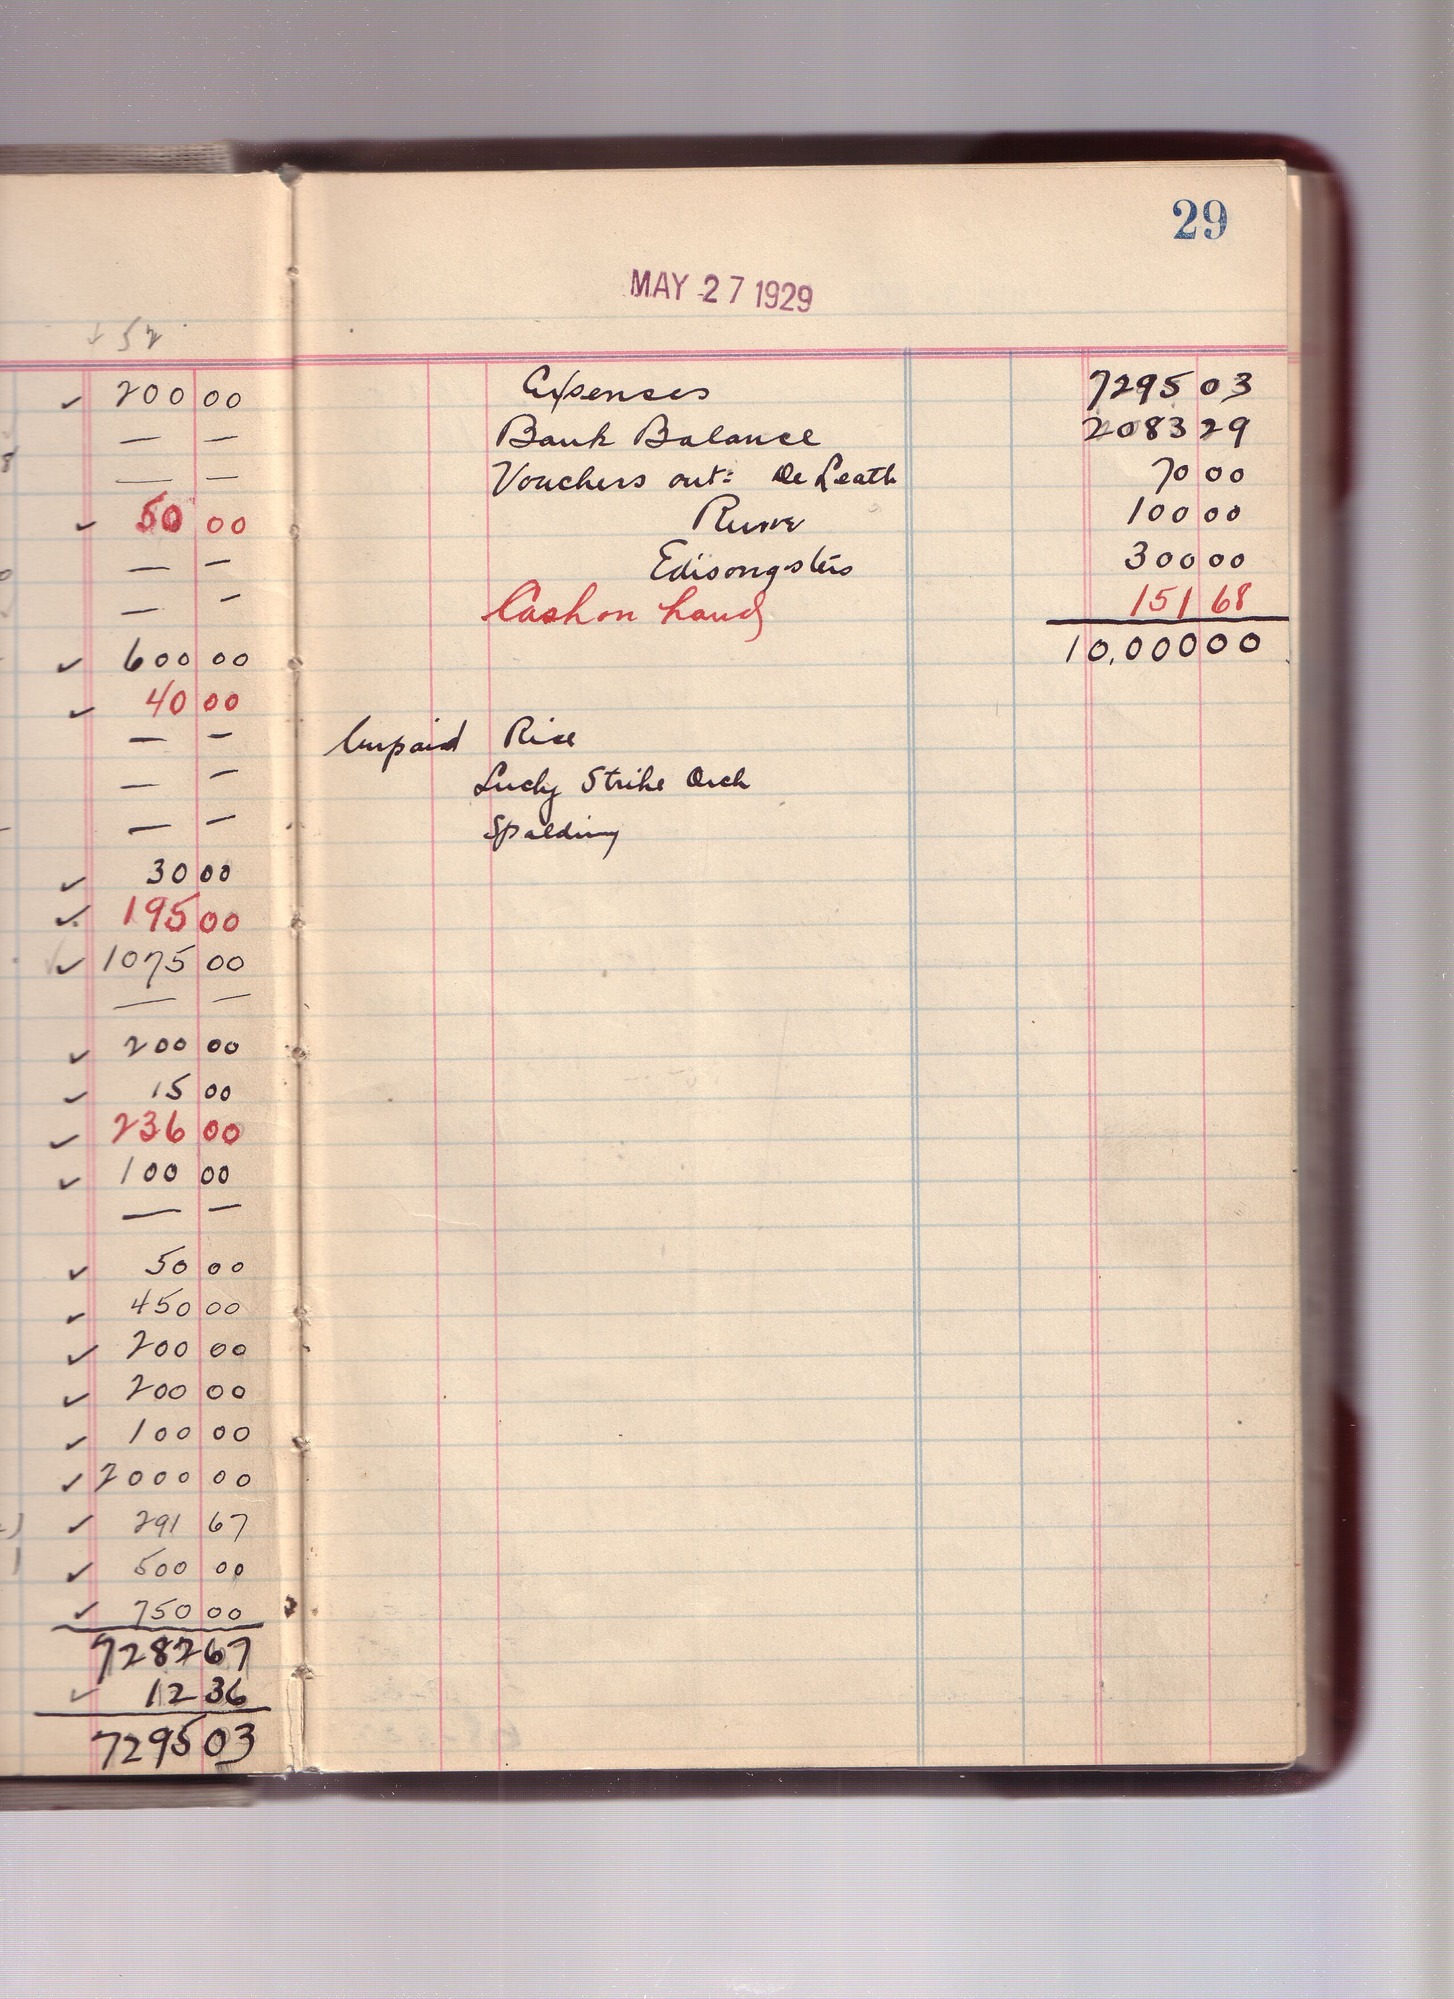 52
200 00
— —
— —
50 00
— —
— —
600 00
40 00
— —
— —
— —
30 00
195 00
1075 00
— —
200 00
15 00
236 00
100 00
— —
50 00
450 00
200 00
200 00
100 00
2000 00
291 67
500 00
750 00
7282 67
12 36
7295 03
29
MAY 27 1929
Expenses 7295 03
Bank Balance 2083 29
Vouchers out: De Leath 70 00
100 00
Edisongsters 300 00
Cash on hand 151 68
10,000 00
Unpaid Rice
Lucky Strike Orch
Spalding